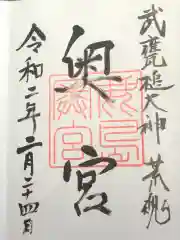 武甕槌大神 荒魂
奥宮
令和二年二月二十四日